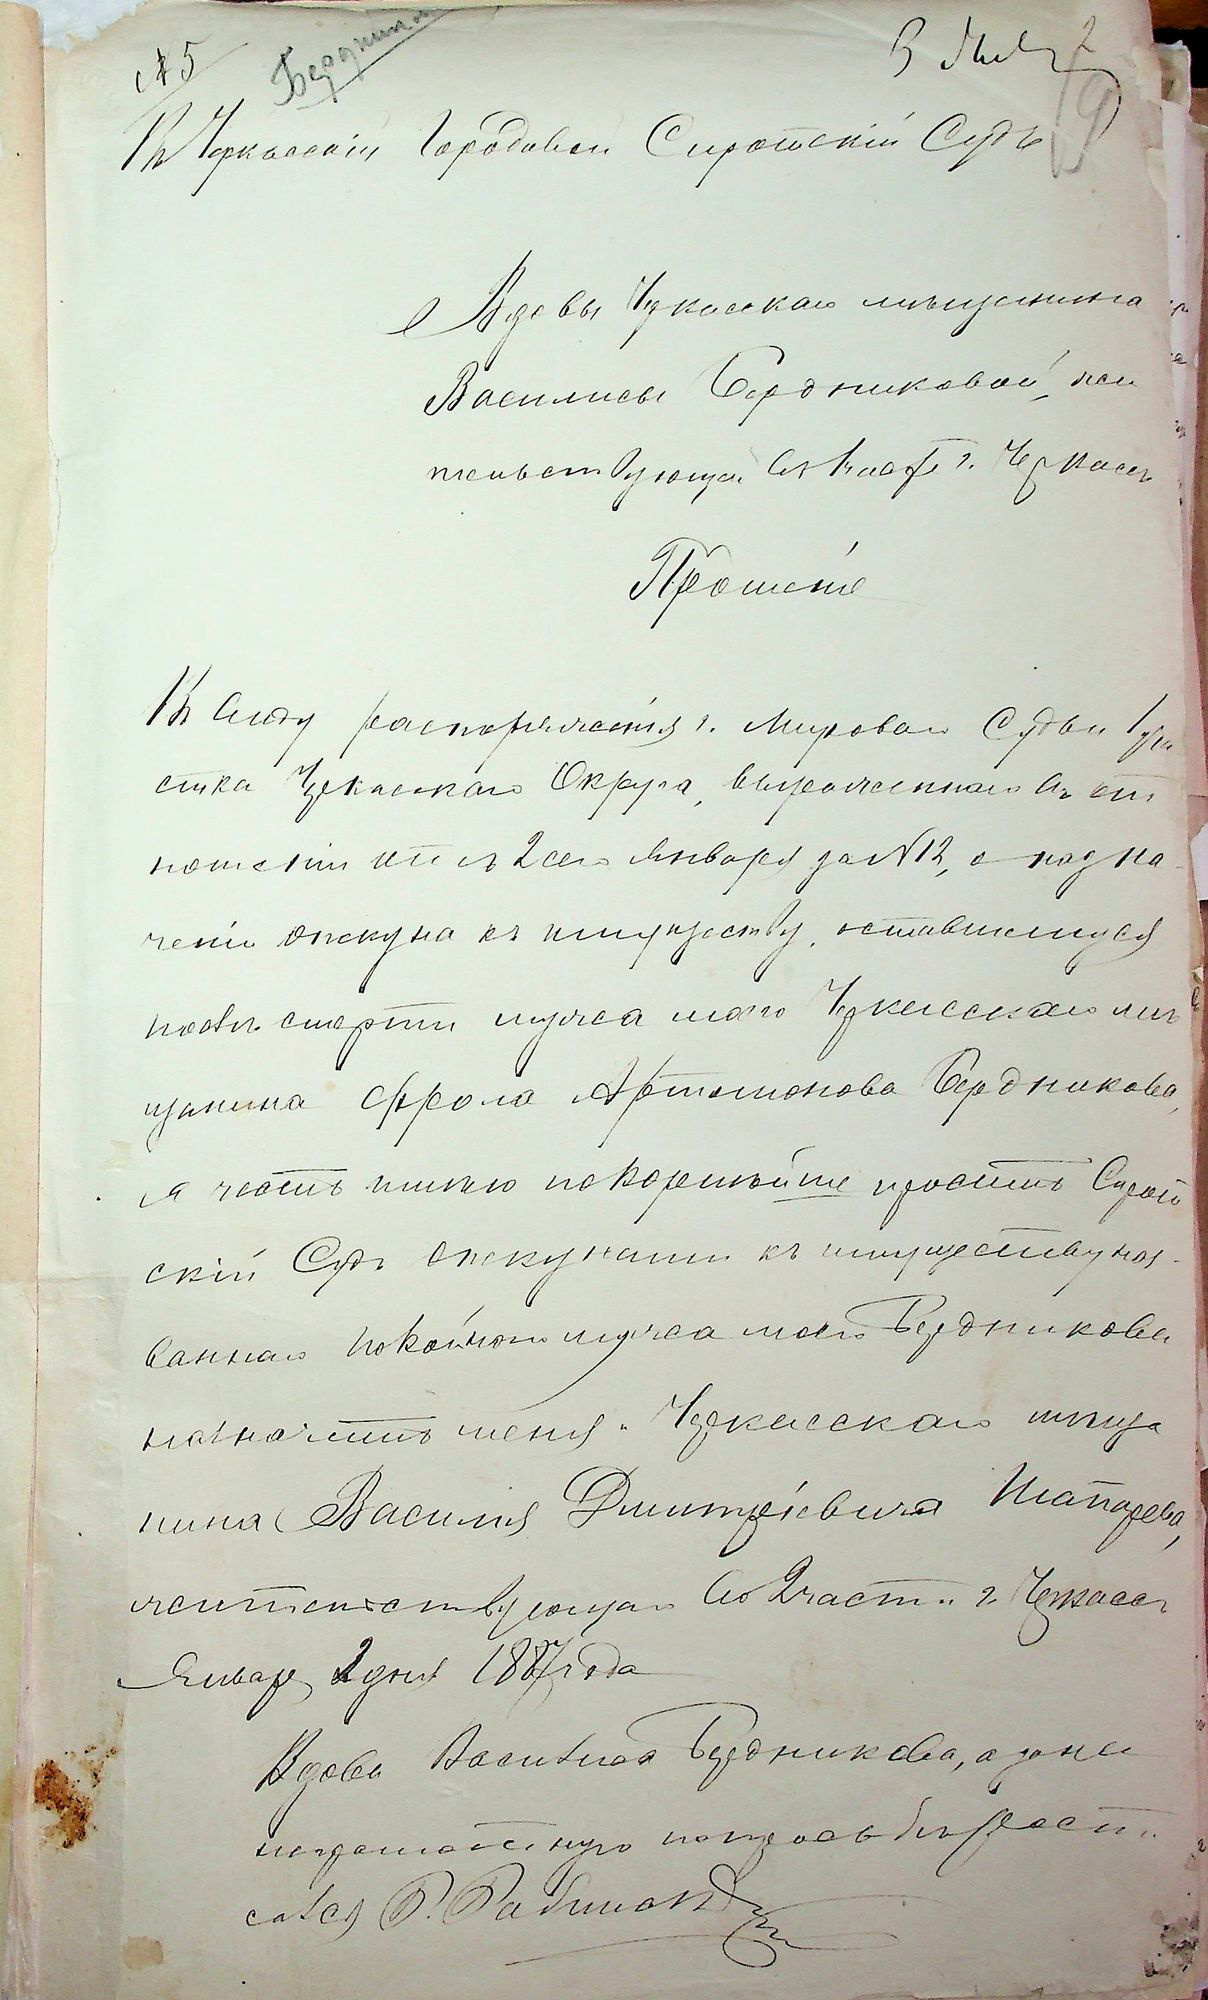 № 5 Бердник
Въ Черкасскій Городовой Сиротскій Судъ
Вдовы Черкаскаго мѣщанина
Василисы Бердниковой, жи
тельствующей въ 1 част. г. Черкасъ
Прошеніе
Въ виду распоряженія г. Мироваго Судьи 1 уча
стка Черкаскаго Округа, выраженнаго въ от
ношеніи отъ 2 сего Января за № 12, о назна
ченіи опекуна къ имуществу, оставшемуся
послѣ смерти мужа моего Черкасскаго мѣ
щанина Фрола Артамонова Бердникова,
я честь имѣю покорнѣйше просить Сирот
скій Судъ опекунами къ имуществу наз
ваннаго покойнаго мужа моего Бердникова
назначить меня и Черкасскаго мѣща
нина Василія Дмитріевича Шапарева,
жительствующаго во 2 части г. Черкасъ
Январь 2 дня 1887 года
Вдова Василиса Бердникова, а за нее
неграмотную по просьбѣ рости
сался Р. Рабинович